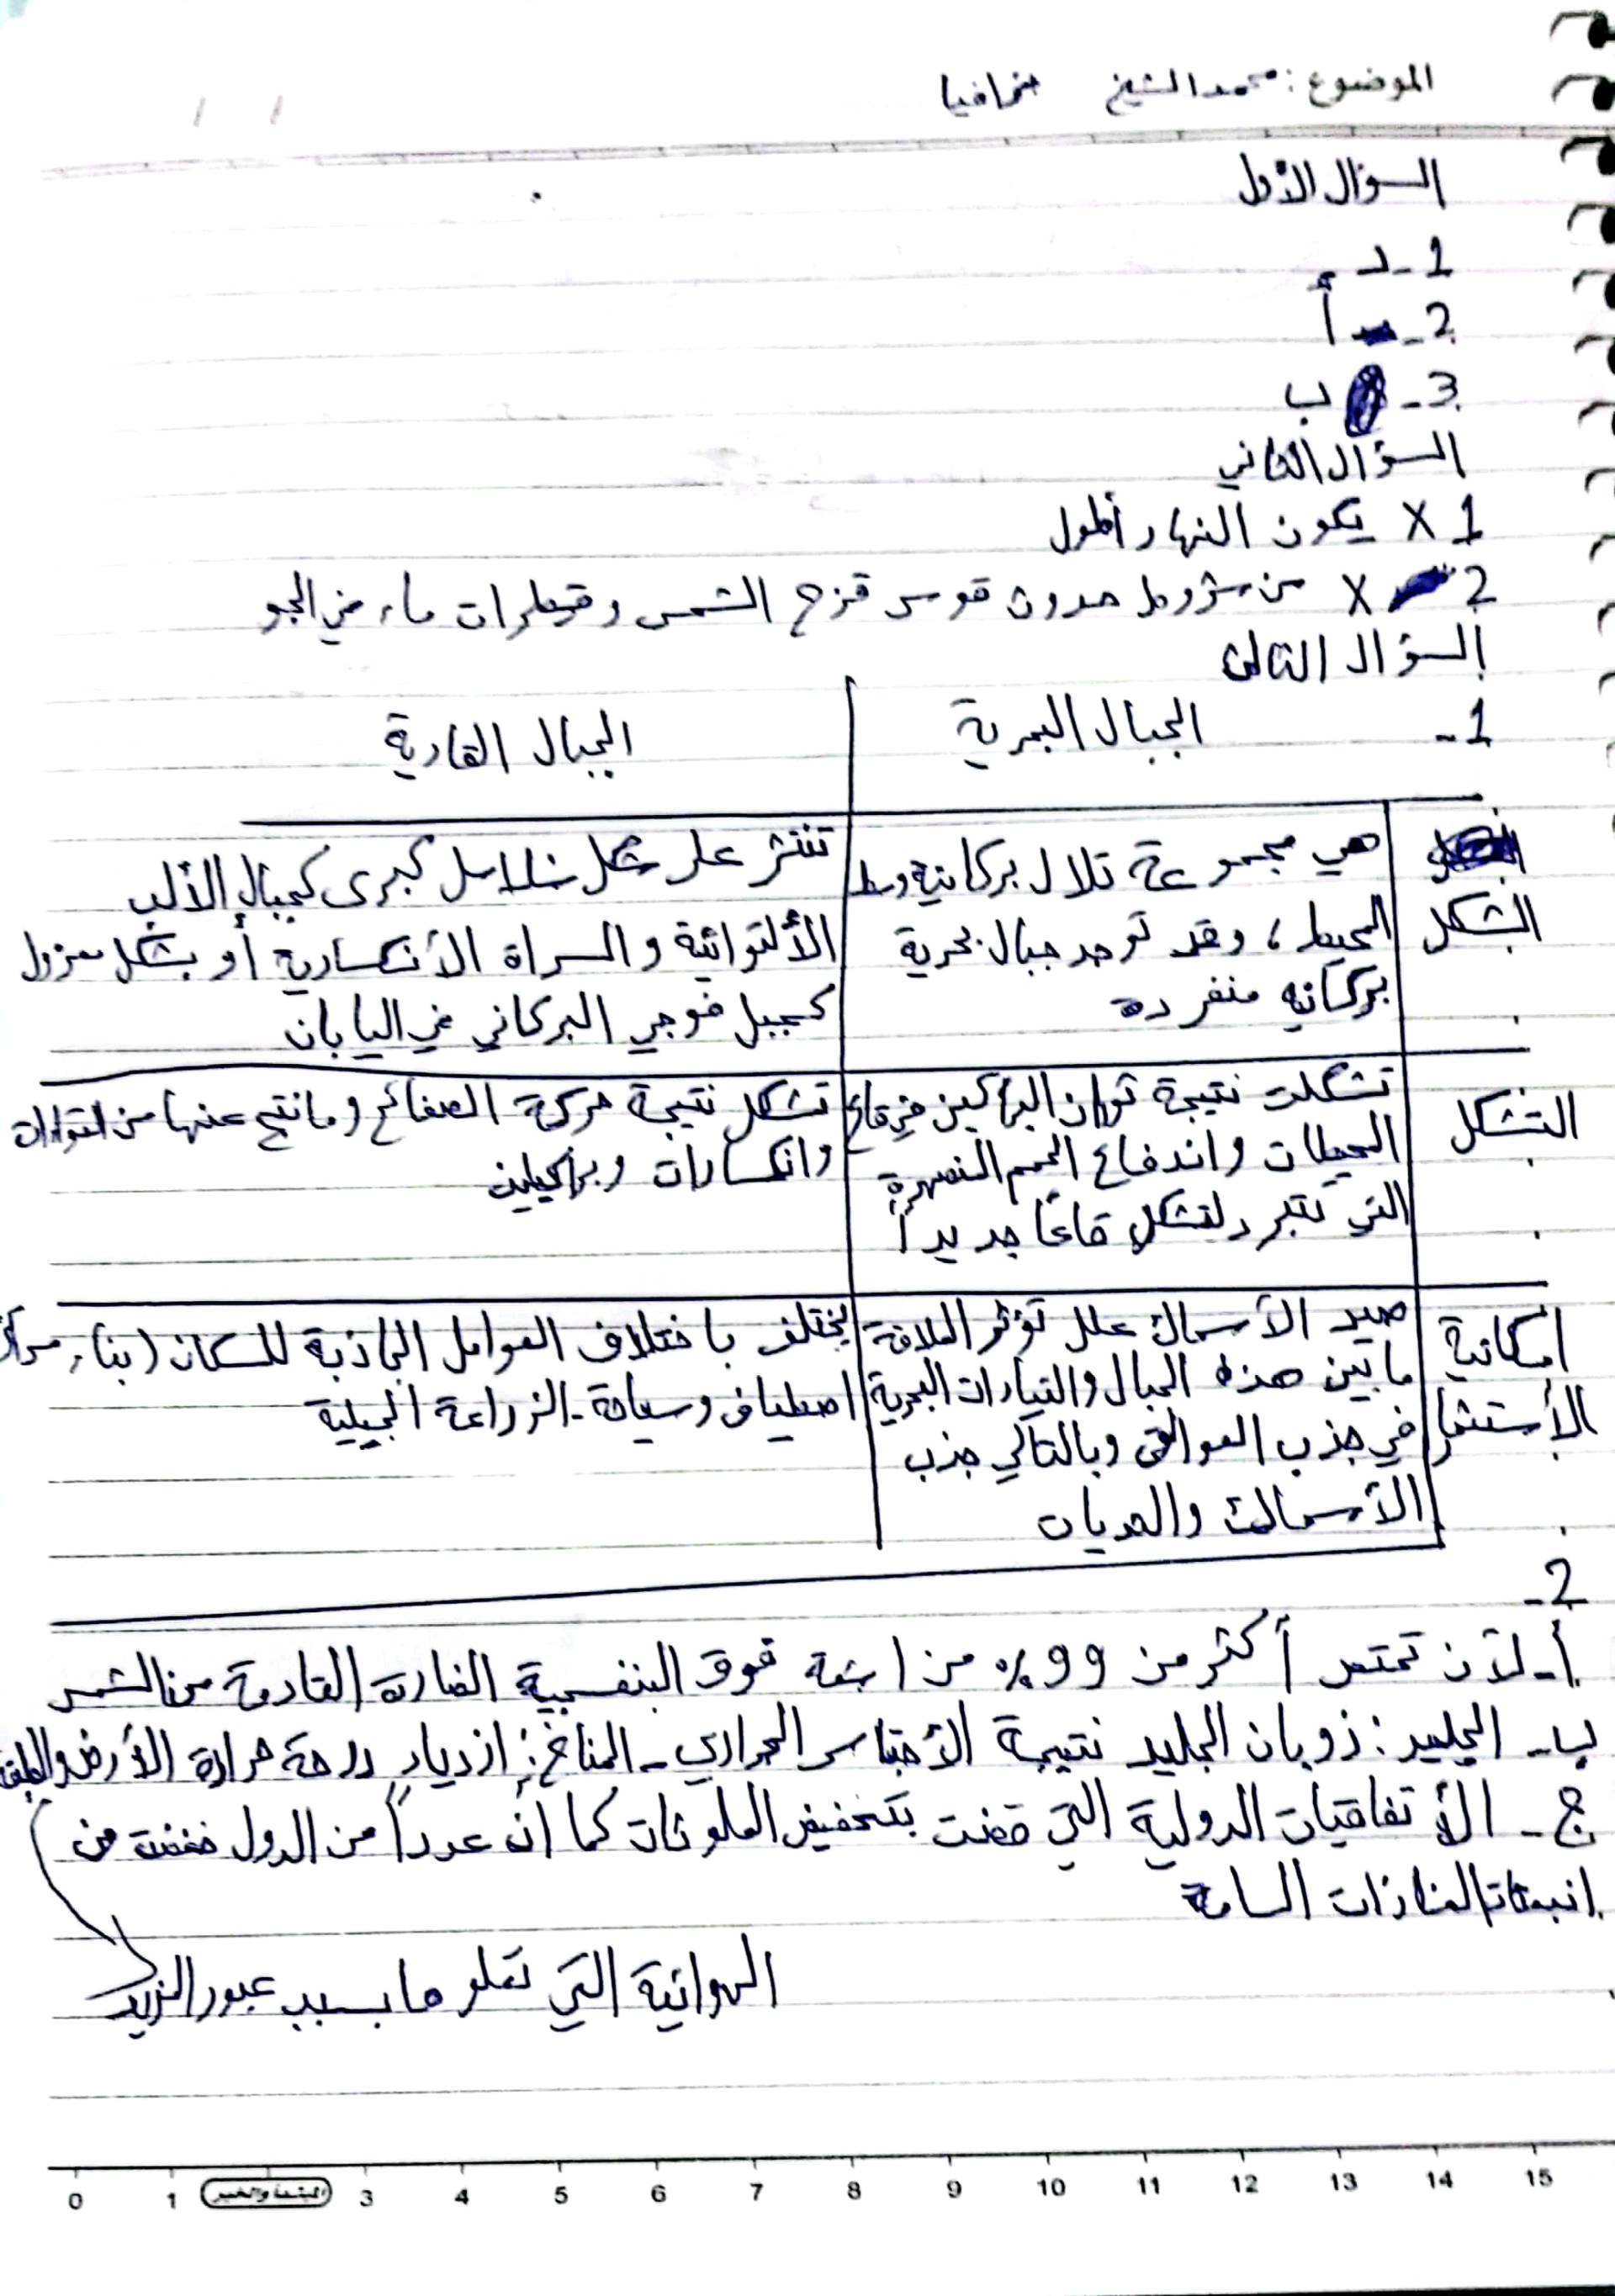 الموضوع: محمد الشيخ جغرافيا
/ /
السؤال الأول
1 - د
2 - أ
3 - ب
السؤال الثاني
1 X يكون النهار أطول
2 X من شروط حدوث قوس قزح الشمس وقطرات ماء في الجو
السؤال الثالث
1 - الجبال البحرية الجبال القارية
الشكل
هي مجموعة تلال بركانية وسط
المحيط، وقد توجد جبال بحرية
بركانيه منفرده
تنتشر على شكل سلاسل كبرى كجبال الألب
الألتوائية والسراة الأنكسارية أو بشكل معزول
كجبل فوجي البركاني في اليابان
التشكل
تشكلت نتيجة ثوران البراكين في قاع
المحيطات واندفاع الحمم المنصهرة
التي تتبرد لتشكل قاعاً جديداً
تشكل نتيجة حركة الصفائح وما نتج عنها من التواءات
وانكسارات وبراكين
امكانية
الأستثمار
صيد الأسماك علل تؤثر العلاقة
ما بين هذه الجبال والتيارات البحرية
في جذب العوالق وبالتالي جذب
الأسماك والحديات
يختلف باختلاف العوامل الجاذبة للسكان (بناء مراكز
اصطياف وسياحة - الزراعة الجبلية
2 -
أ - لأن تمتص أكثر من 99% من اشعة فوق البنفسجية الضارة القادمة من الشمس
ب - الجليد: ذوبان الجليد نتيجة الأحتباس الحراري - المناخ: ازدياد درجة حرارة الأرض والطبقة
الهوائية التي تعلوها بسبب عبور المزيد
ج - الأتفاقيات الدولية التي قضت بتخفيض الملوثات كما أن عدداً من الدول خففت من
انبعاثات الغازات السامة
0 1 3 4 5 6 7 8 9 10 11 12 13 14 15